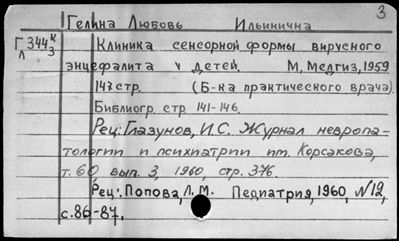 3
Гелина Любовь Ильинична
Г 344 к
л 3
Клиника сенсорной формы вирусного
энцефалита у детей. М, Медгиз, 1959
147 стр. (Б-ка практического врача).
Библиогр. стр 141-146.
Рец: Глазунов, И.С. Журнал невропа-
тологии и психиатрии им. Корсакова,
т. 60 вып. 3, 1960, стр. 376.
Рец: Попова, Л. М. Педиатрия, 1960, №12,
с. 86-87.